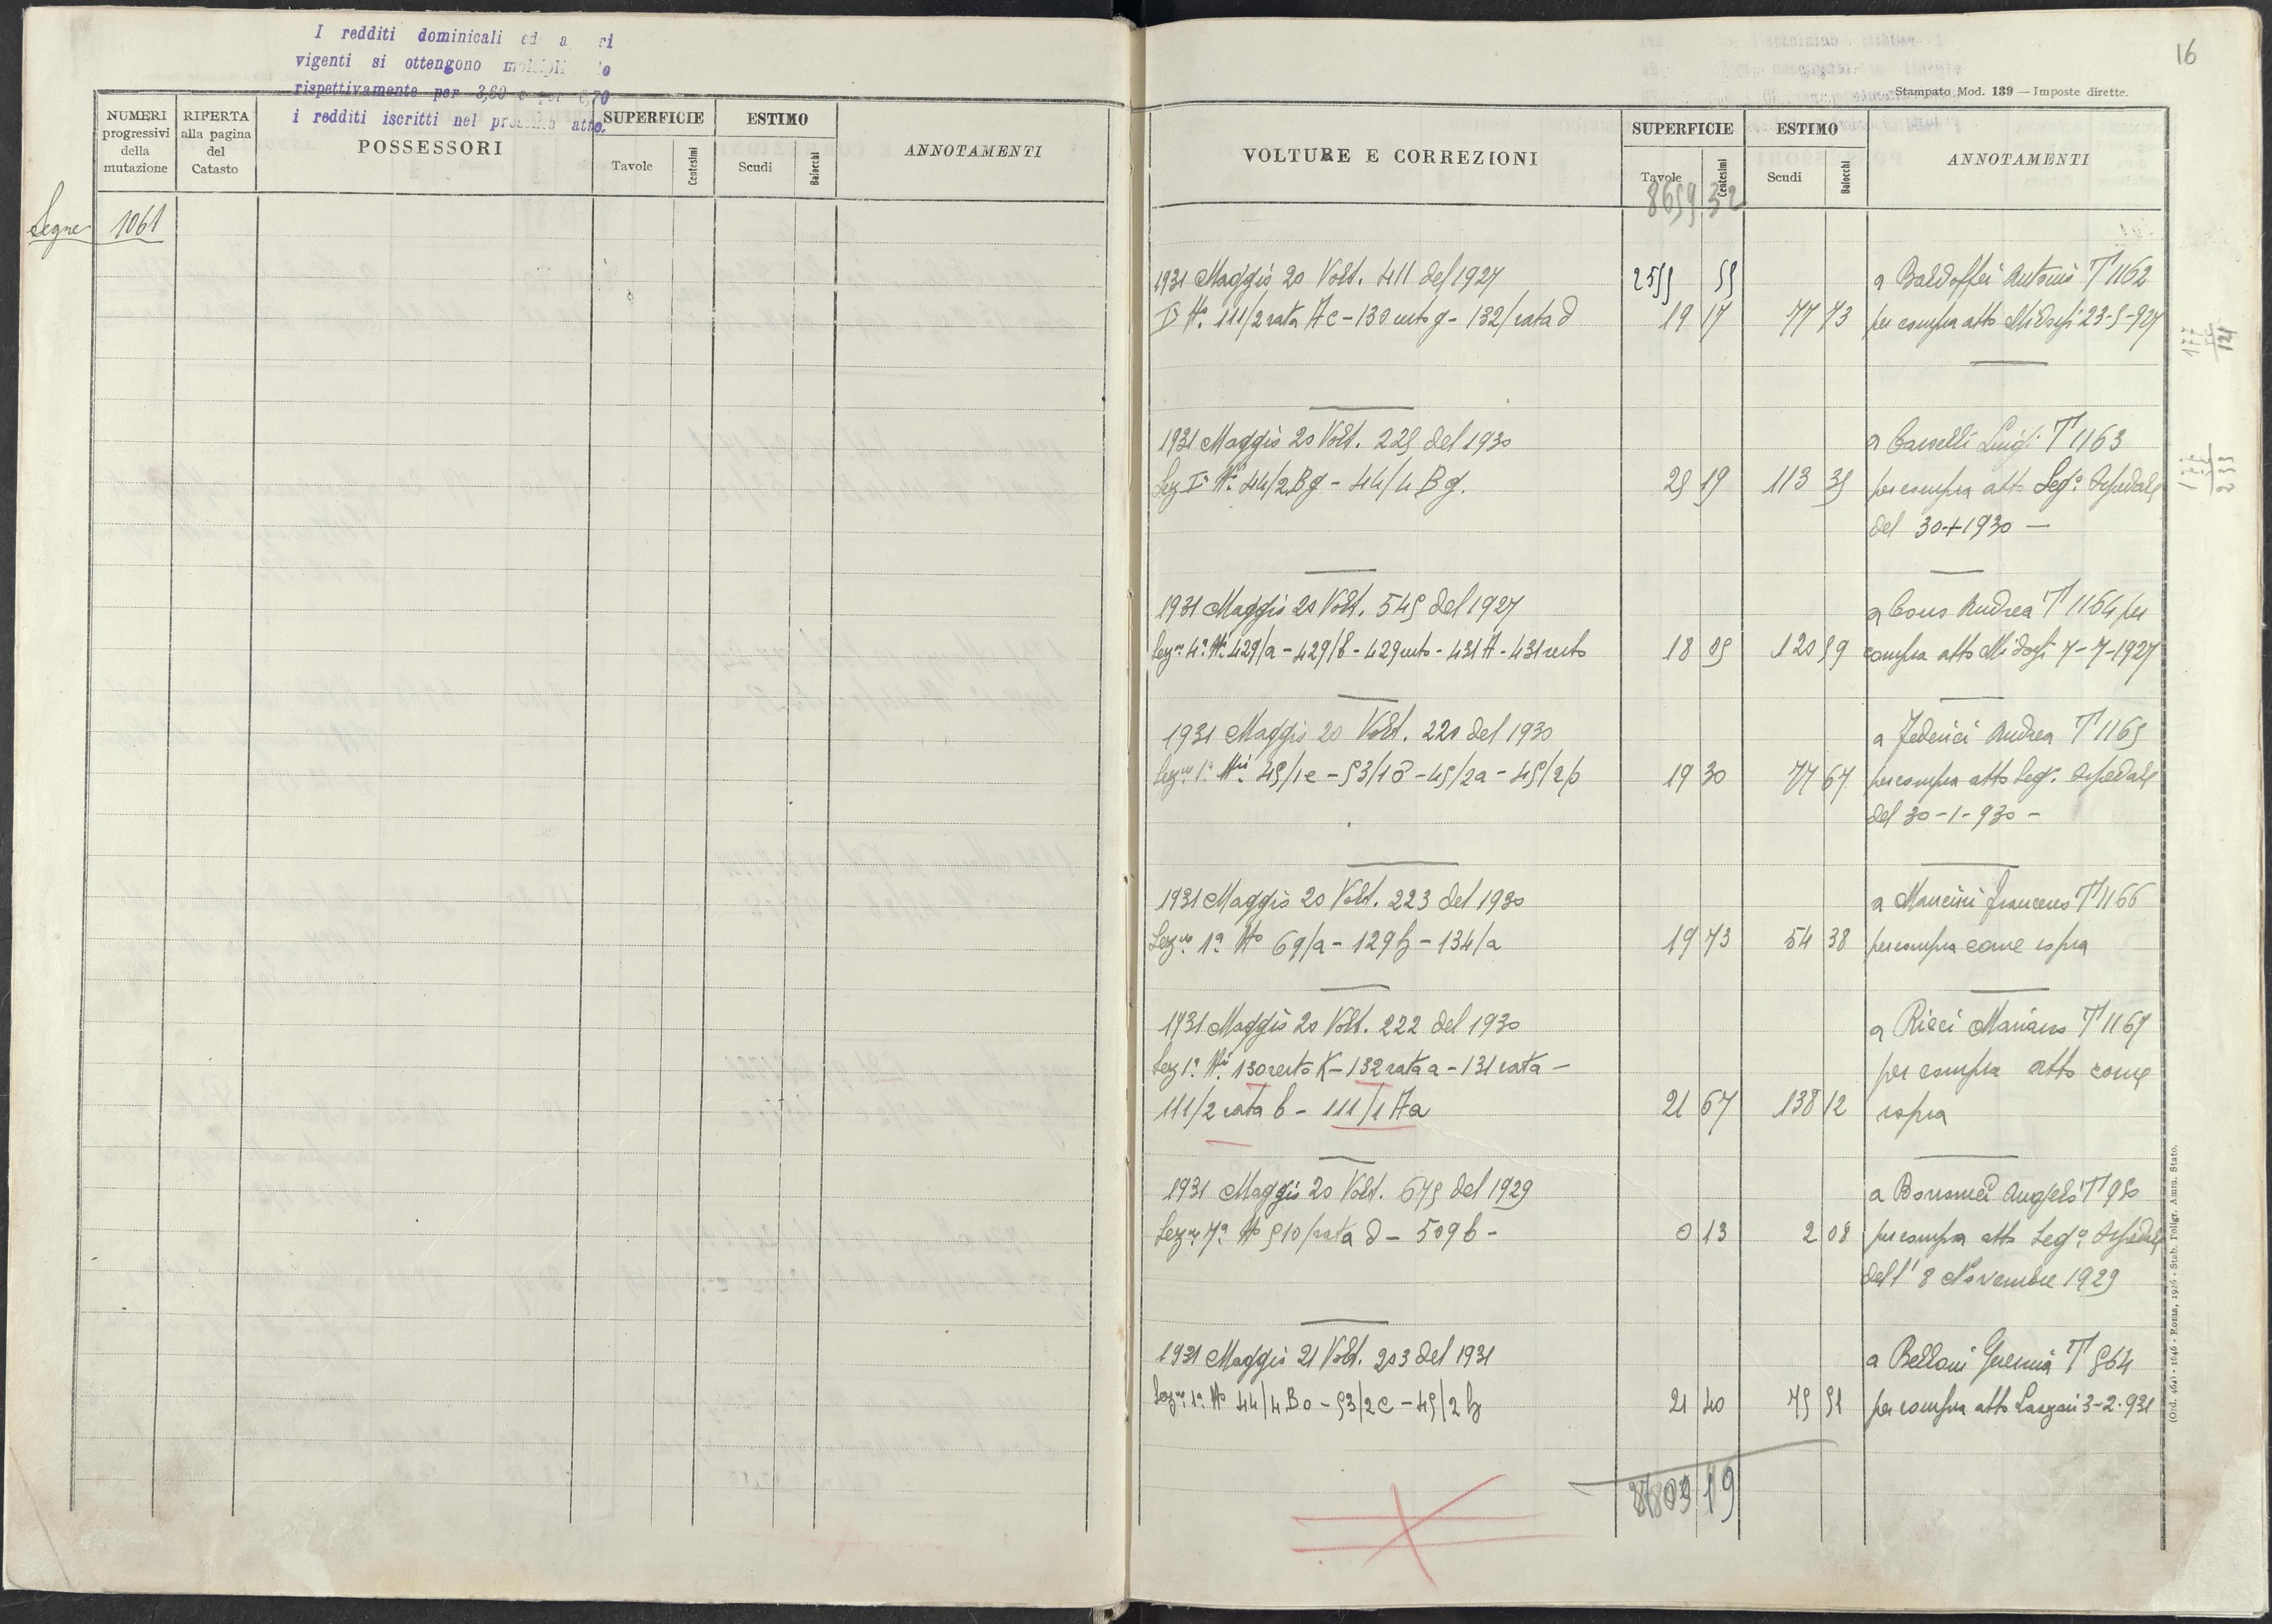 I redditi dominicali ed a ri
vigenti si ottengono
rispettivamente per 3,60 e per 6,70
i redditi iscritti nel presente atto.
NUMERI progressivi della mutazione
RIFERTA alla pagina del Catasto
POSSESSORI
SUPERFICIE
Tavole
Centesimi
ESTIMO
Scudi
Baiocchi
ANNOTAMENTI
Segue 1061
16
Stampato Mod. 139 — Imposte dirette.
VOLTURE E CORREZIONI
SUPERFICIE
Tavole
Centesimi
ESTIMO
Scudi
Baiocchi
ANNOTAMENTI
8659 32
1931 Maggio 20 Volt. 411 del 1927 a Antonio T 1162
111/2 rata Ac - 130 resto g - 132/rata d 19 17 77 73 per compra atto 23-5-927
1931 Maggio 20 Volt. 225 del 1930 a Luigi T 1163
Sez I 44/2 Bg - 44/4 Bg. 25 19 113 35 per compra atto Seg. Ospedale
del 30-1-1930 —
1931 Maggio 20 Volt. 545 del 1927 a Andrea T 1164 per
Sez. 4ª 429/a - 429/b - 429 resto - 431 A - 431 resto 18 05 120 59 compra atto 7-7-1927
1931 Maggio 20 Volt. 220 del 1930 a Federici Andrea T 1165
Sez. 1ª 45/1e - 53/1 - 45/2a - 45/2p 19 30 77 67 per compra atto Seg. Ospedale
del 30-1-930 -
1931 Maggio 20 Volt. 223 del 1930 a Mancini Francesco T 1166
Sez. 1ª No 69/a - 129 b - 134/a 19 73 54 38 per compra come sopra
1931 Maggio 20 Volt. 222 del 1930 a Ricci Mariano T 1167
Sez 1ª 130 resto K - 132 rata a - 131 rata — per compra atto come
111/2 rata b - 111/1 Aa 21 67 138 12 sopra
1931 Maggio 20 Volt. 675 del 1929 a Angelo T 950
Sez. 7ª No 510/rata d - 509 b - 0 13 2 08 per compra atto Seg. Ospedale
dell' 8 Novembre 1929
1931 Maggio 21 Volt. 203 del 1931 a Belloni T 564
Sez. 1ª No 44/4 Bo - 53/2 c - 45/2 b 21 40 75 51 per compra atto 3-2-931
19
(Ord. 464) - 1646 - Roma, 1926 - Stab. Poligr. Amm. Stato.